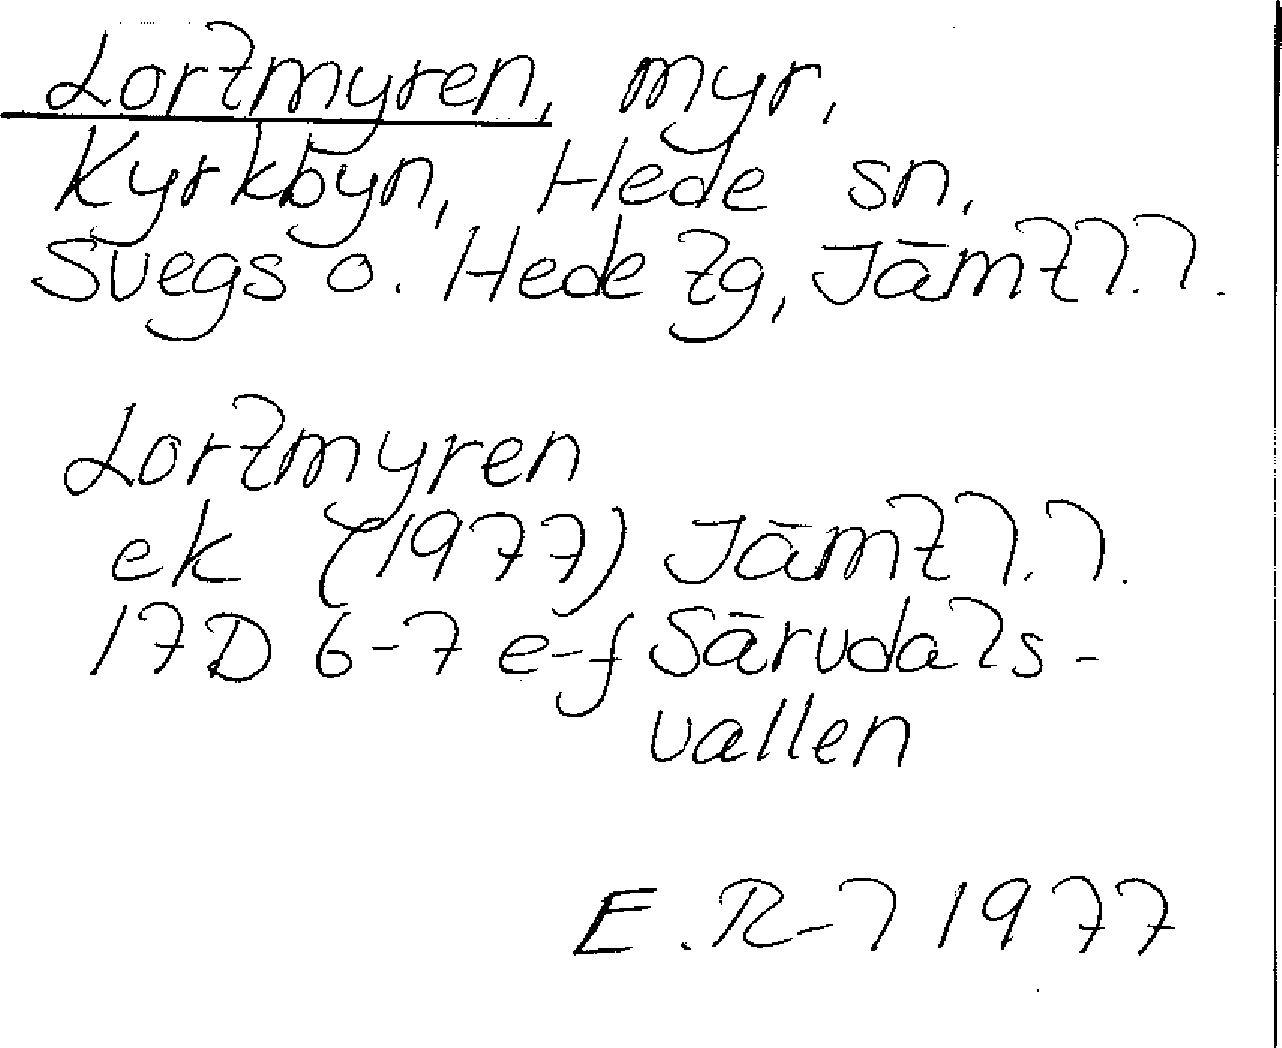 Lortmyren, myr,
Kyrkbyn, Hede sn,
Svegs o. Hede tg, Jämtl.l.
Lortmyren
ek (1977) Jämtl.l.
17D 6-7 e-f Särvdals-
vallen
E.R-l 1977